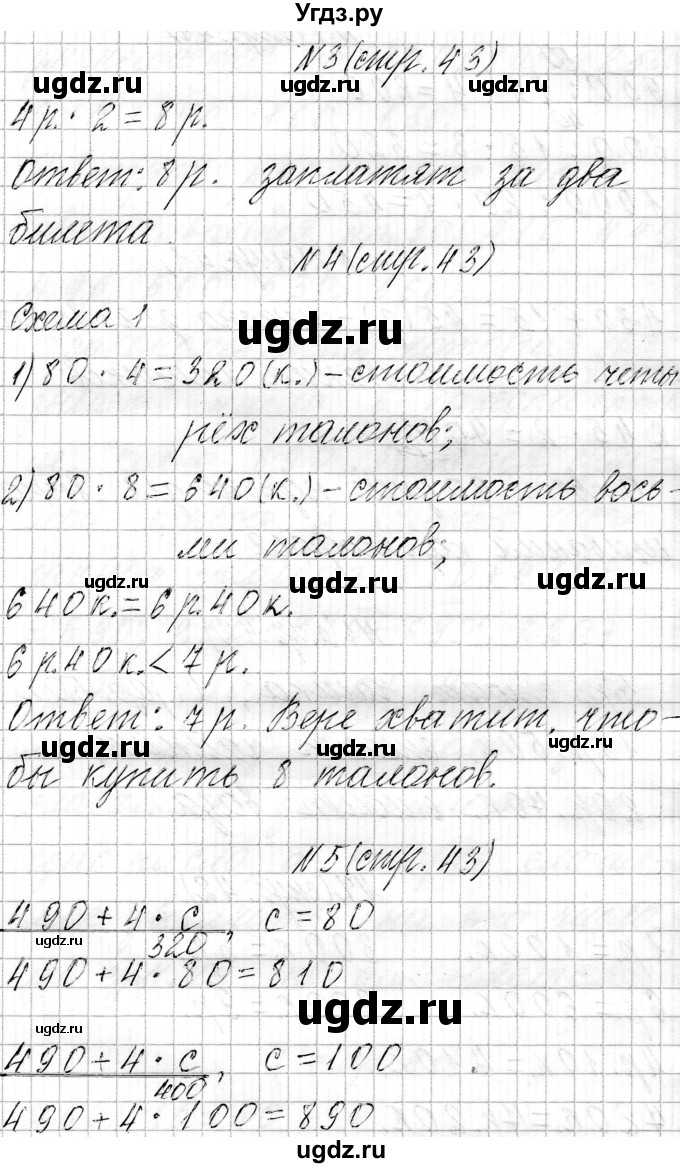 Угдз.ру
N3(стр. 43)
ugdz.ru ugdz.ru ugdz.ru
4р. · 2 = 8р.
Ответ: 8р. заплатят за два
билета.
N4(стр. 43)
Схема 1
ugdz.ru
1) 80 · 4 = 320(к.) – стоимость четы
рёх талонов;
2) 80 · 8 = 640(к.) – стоимость вось-
ми талонов;
ugdz.ru ugdz.ru ugdz.ru
640к. = 6р.40к.
6р.40к. < 7р.
Ответ: 7р. Вере хватит, что-
ugdz.ru ugdz.ru ugdz.ru
бы купить 8 талонов.
N5(стр. 43)
490 + 4 · с, с = 80
ugdz.ru 320
490 + 4 · 80 = 810
ugdz.ru
ugdz.ru
490 + 4 · с, с = 100
400
490 + 4 · 100 = 890
ugdz.ru